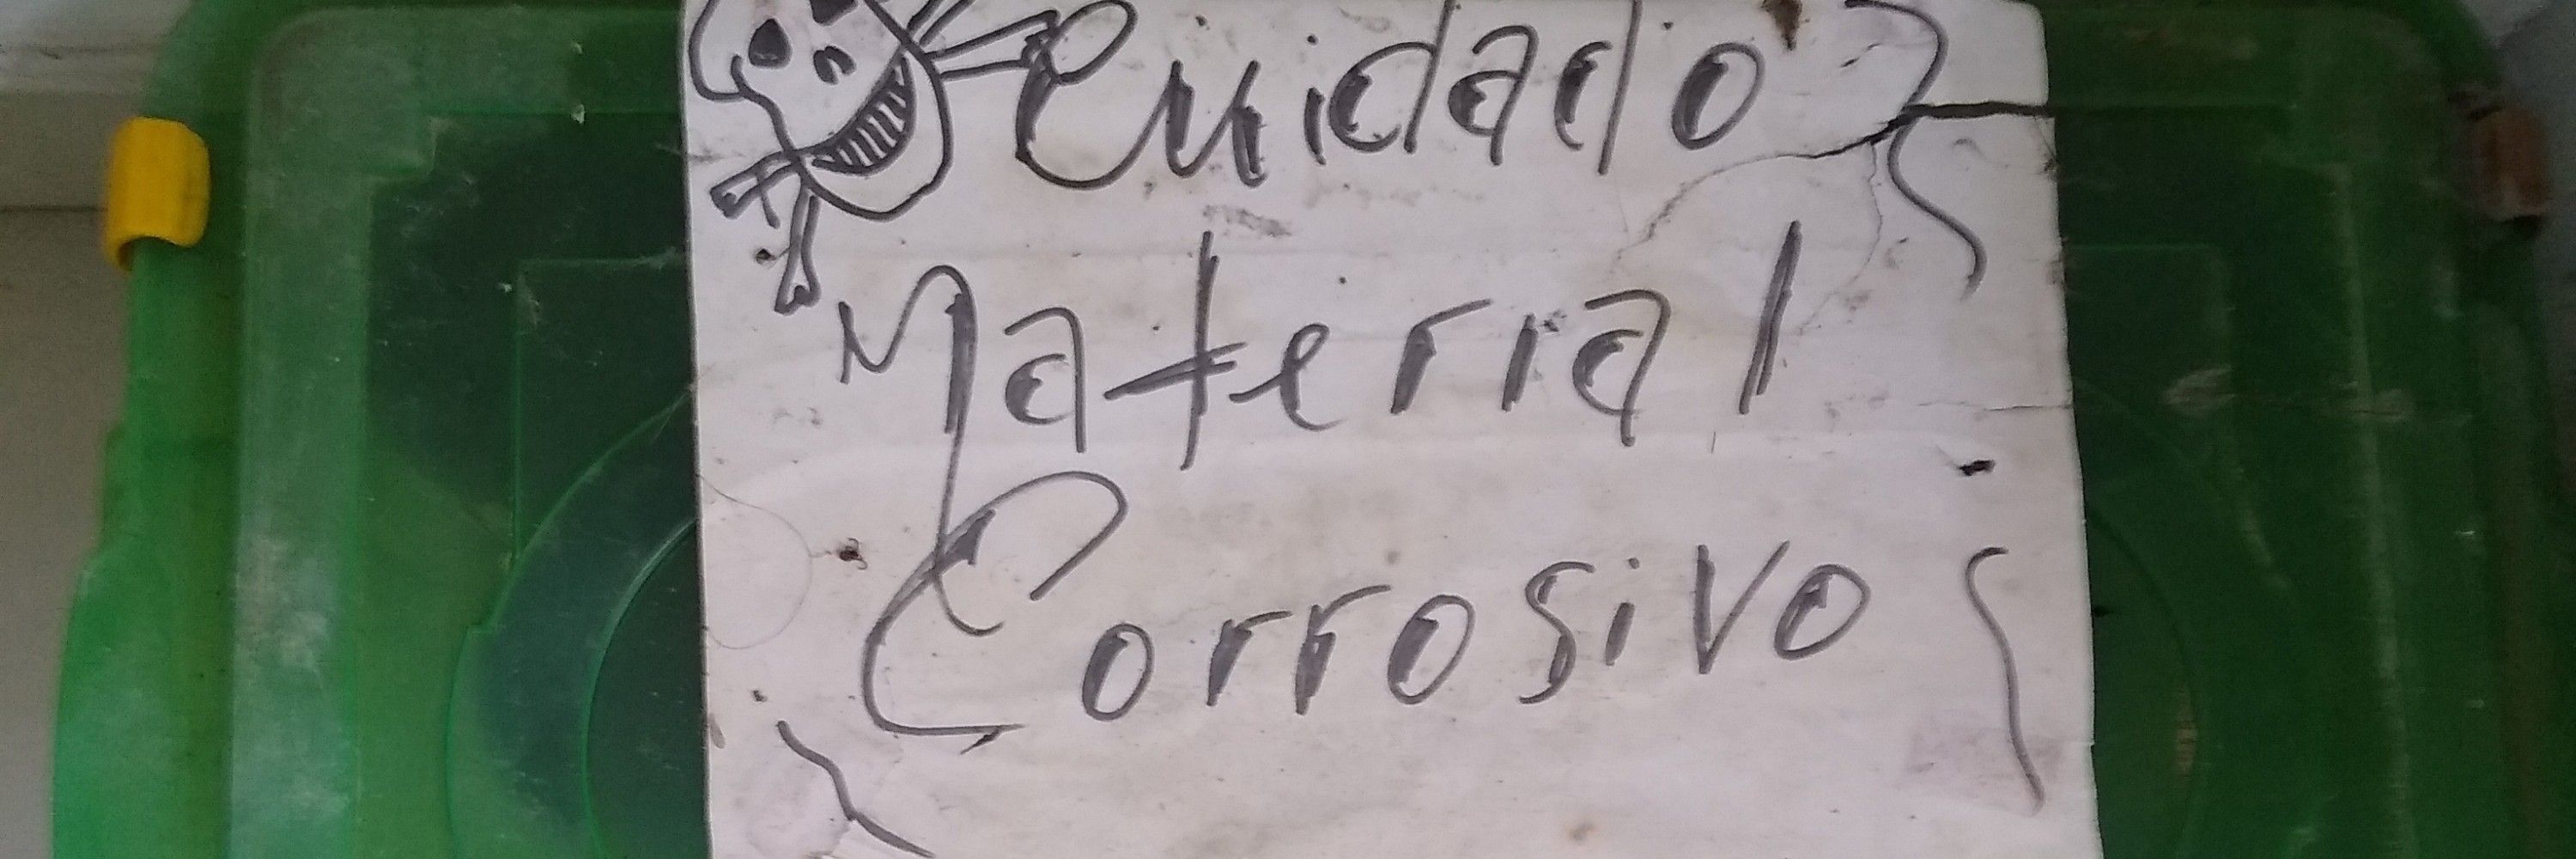 Cuidado
Material
Corrosivo